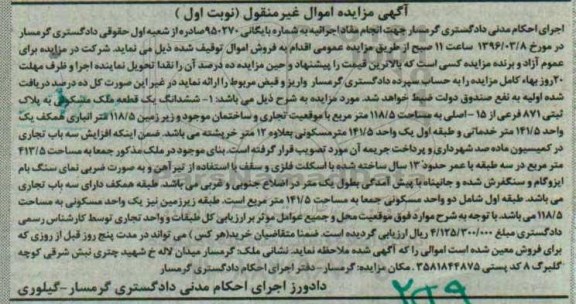 آگهی مزایده اموال غیرمنقول (نوبت اول )
اجرای احکام مدنی دادگستری گرمسار جهت انجام مفاد اجرائیه به شماره بایگانی ۹۵۰۲۷۰ صادره از شعبه اول حقوقی دادگستری گرمسار
در مورخ ۱۳۹۶/۰۳/۸ ساعت ۱۱ صبح از طریق مزایده عمومی اقدام به فروش اموال توقیف شده ذیل می نماید. شرکت در مزایده برای
عموم آزاد و برنده مزایده کسی است که بالاترین قیمت را پیشنهاد و حین مزایده ده درصد آن را نقدا تحویل نماینده اجرا و ظرف مهلت
۲۰روز بهاء کامل مزایده را به حساب سپرده دادگستری گرمسار واریز و قبض مربوط را ارائه نماید در غیر این صورت کل ده درصد دریافت
شده اولیه به نفع صندوق دولت ضبط خواهد شد. مورد مزایده به شرح ذیل می باشد: ۱- ششدانگ یک قطعه ملک مسکونی به پلاک
ثبتی ۸۷۱ فرعی از ۱۵ - اصلی به مساحت ۱۱۸/۵ متر مربع با موقعیت تجاری و ساختمان موجود و زیر زمین ۱۱۸/۵ متر انباری همکف یک
واحد ۱۴۱/۵ متر خدماتی و طبقه اول یک واحد ۱۴۱/۵ مترمسکونی بعلاوه ۱۲ متر خرپشته می باشد. ضمن اینکه افزایش سه باب تجاری
در کمیسیون ماده صد شهرداری و پرداخت جریمه آن مورد تصویب قرار گرفته است. بنای موجود در ملک مذکور جمعا به مساحت ۴۱۳/۵
متر مربع در سه طبقه با عمر حدود ۱۳ سال ساخته شده با اسکلت فلزی و سقف با استفاده از تیرآهن و به صورت ضربی نمای سنگ بام
ایزوگام و سنگفرش شده و جانپناه با پیش آمدگی بطول یک متر در اضلاع جنوبی و غربی می باشد. طبقه همکف دارای سه باب تجاری
می باشد. طبقه اول شامل دو واحد مسکونی جمعا به مساحت ۱۴۱/۵ متر مربع است. طبقه زیرزمین نیز یک واحد مسکونی به مساحت
۱۱۸/۵ می باشد. با توجه به شرح موارد فوق موقعیت محل و جمیع عوامل موثر بر ارزیابی کل طبقات و واحد تجاری توسط کارشناس رسمی
دادگستری مبلغ ۴/۱۲۵/۳۰۰/۰۰۰ ریال ارزیابی گردیده است. ضمنا متقاضیان خرید(هر کس) می تواند در مدت پنج روز قبل از روزی که
برای فروش معین شده است اموالی را که آگهی شده ملاحظه نماید. نشانی ملک: گرمسار میدان لاله خ شهید چتری نبش شرقی کوچه
گلبرگ ۸ کد پستی ۳۵۸۱۸۴۴۸۷۵ .مکان مزایده: گرمسار- دفتر اجرای احکام دادگستری گرمسار
دادورز اجرای احکام مدنی دادگستری گرمسار-گیلوری